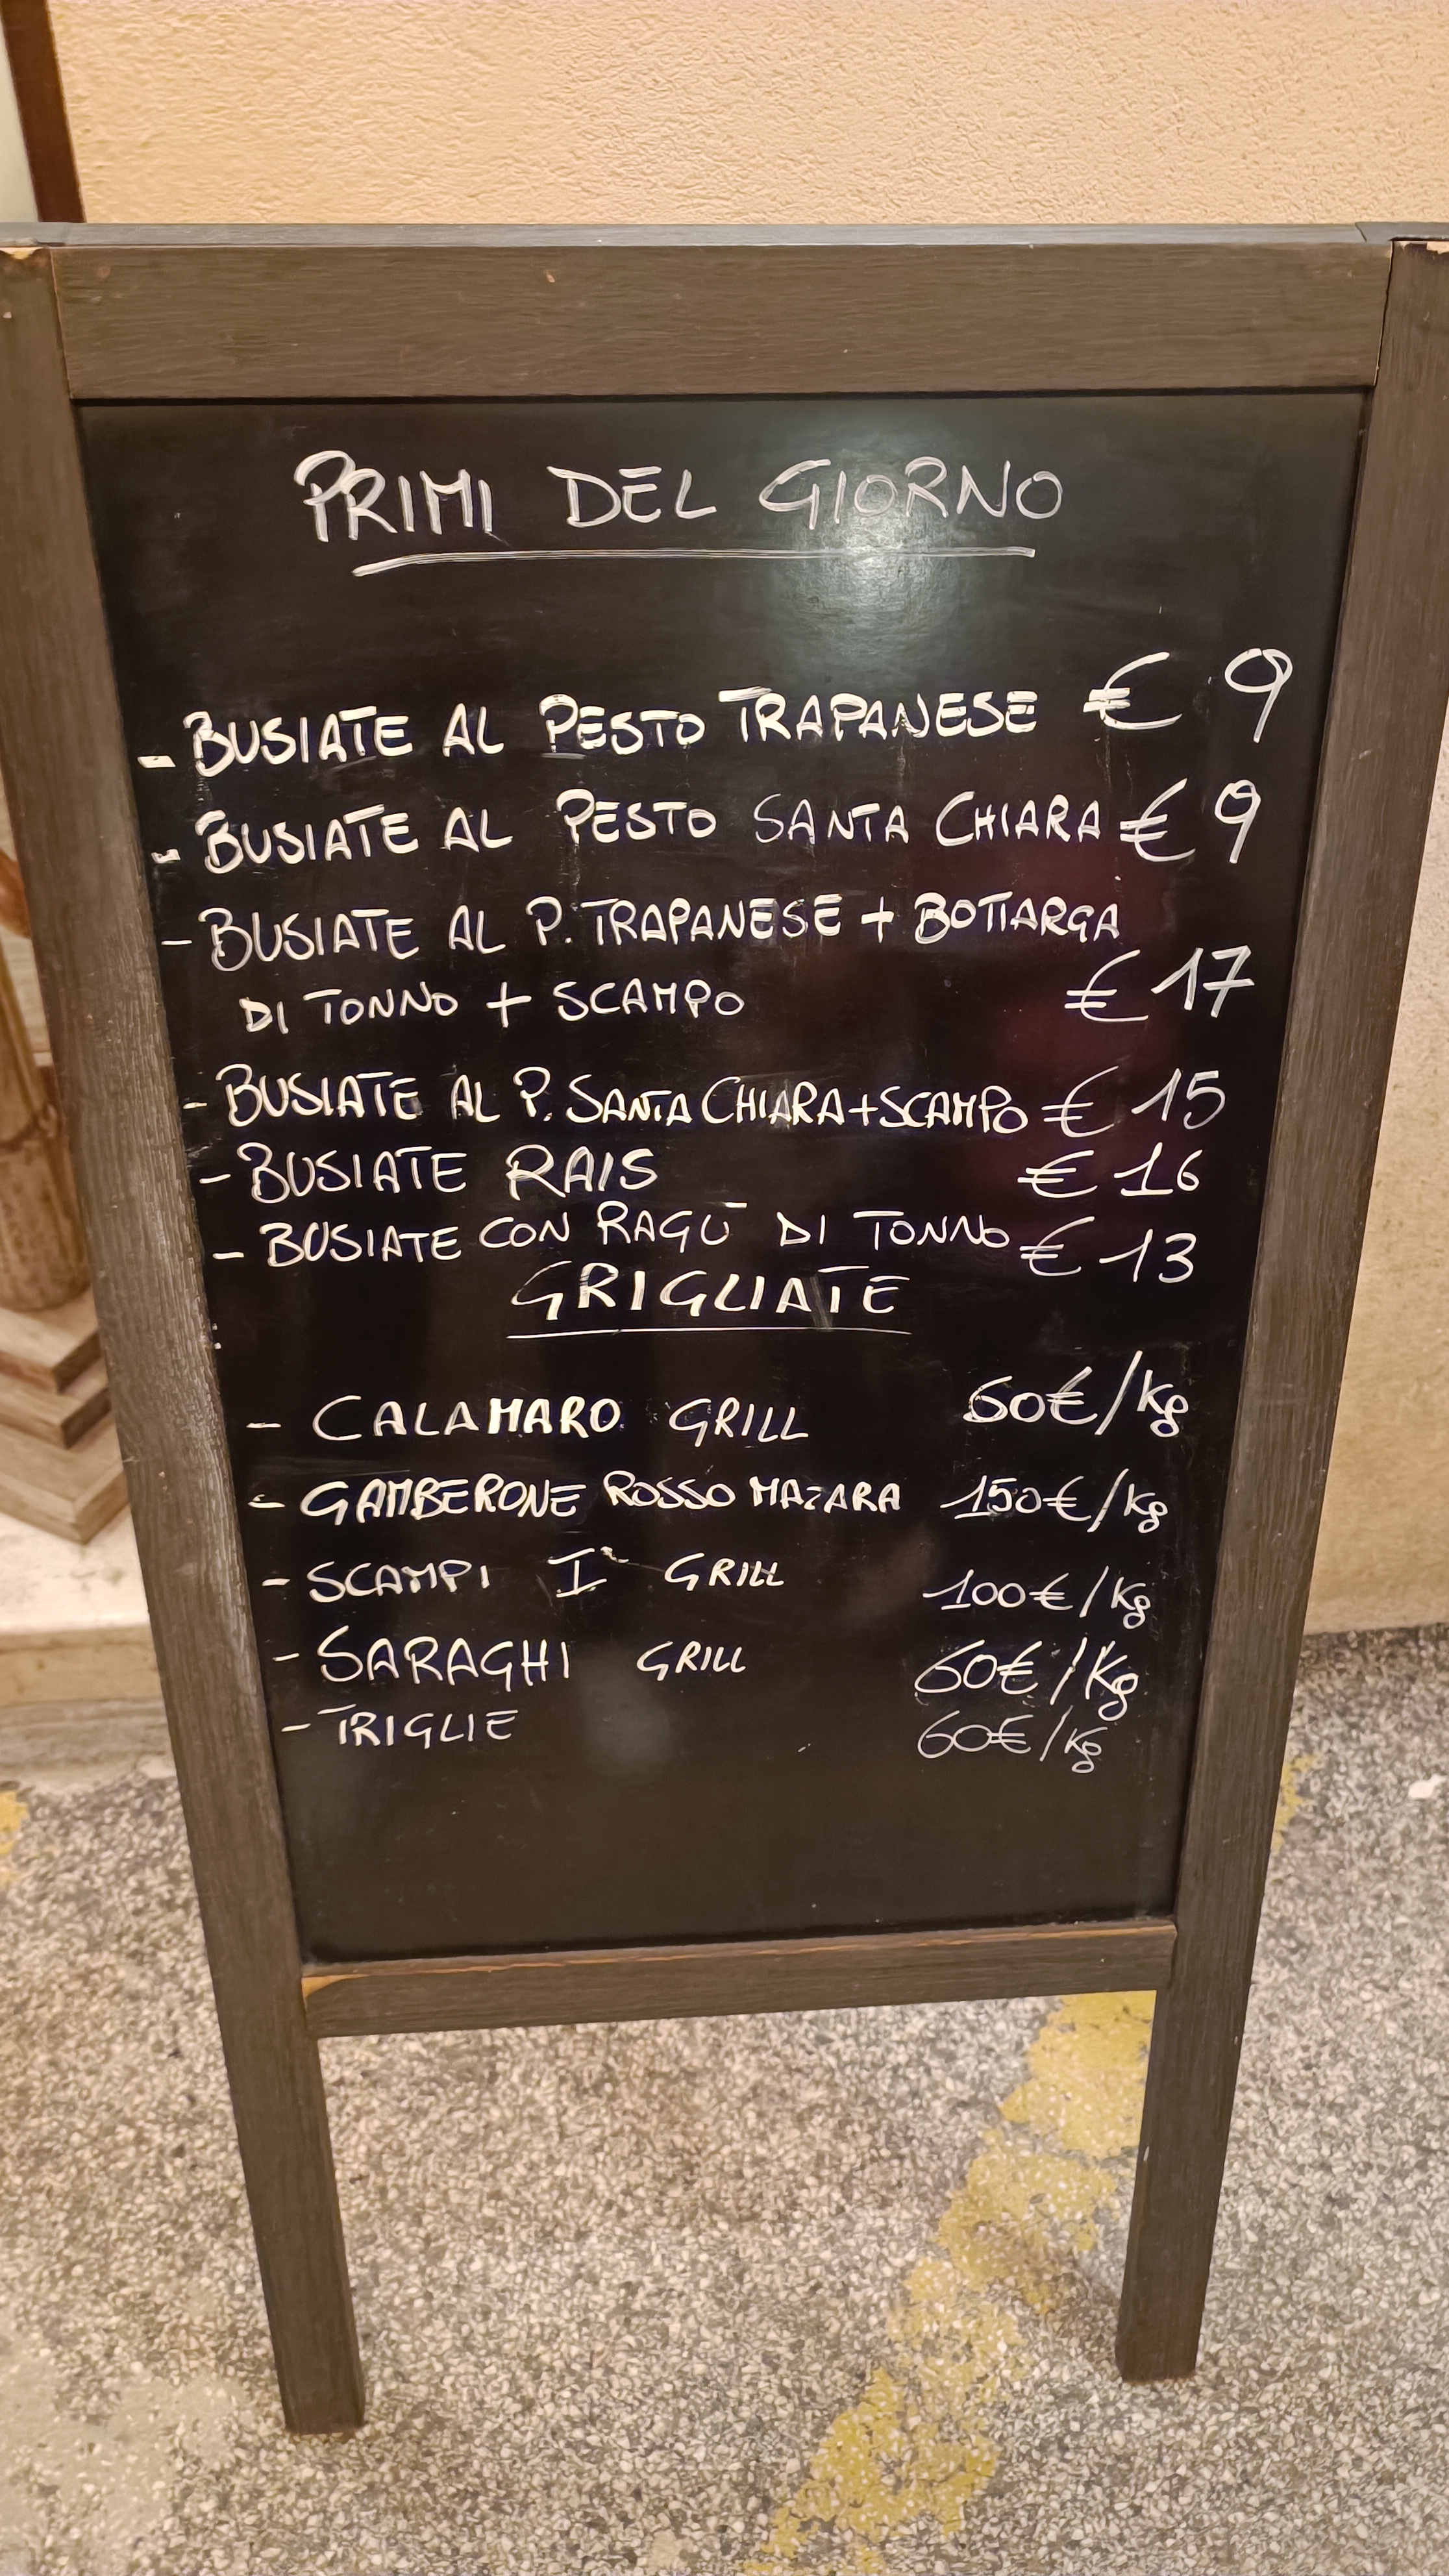 PRIMI DEL GIORNO
- BUSIATE AL PESTO TRAPANESE € 9
- BUSIATE AL PESTO SANTA CHIARA € 9
- BUSIATE AL P. TRAPANESE + BOTTARGA
DI TONNO + SCAMPO € 17
- BUSIATE AL P. SANTA CHIARA + SCAMPO € 15
- BUSIATE RAIS € 16
- BUSIATE CON RAGÙ DI TONNO € 13
GRIGLIATE
- CALAMARO GRILL 60€/Kg
- GAMBERONE ROSSO MAZARA 150€/Kg
- SCAMPI I° GRILL 100€/Kg
- SARAGHI GRILL 60€/Kg
- TRIGLIE 60€/Kg